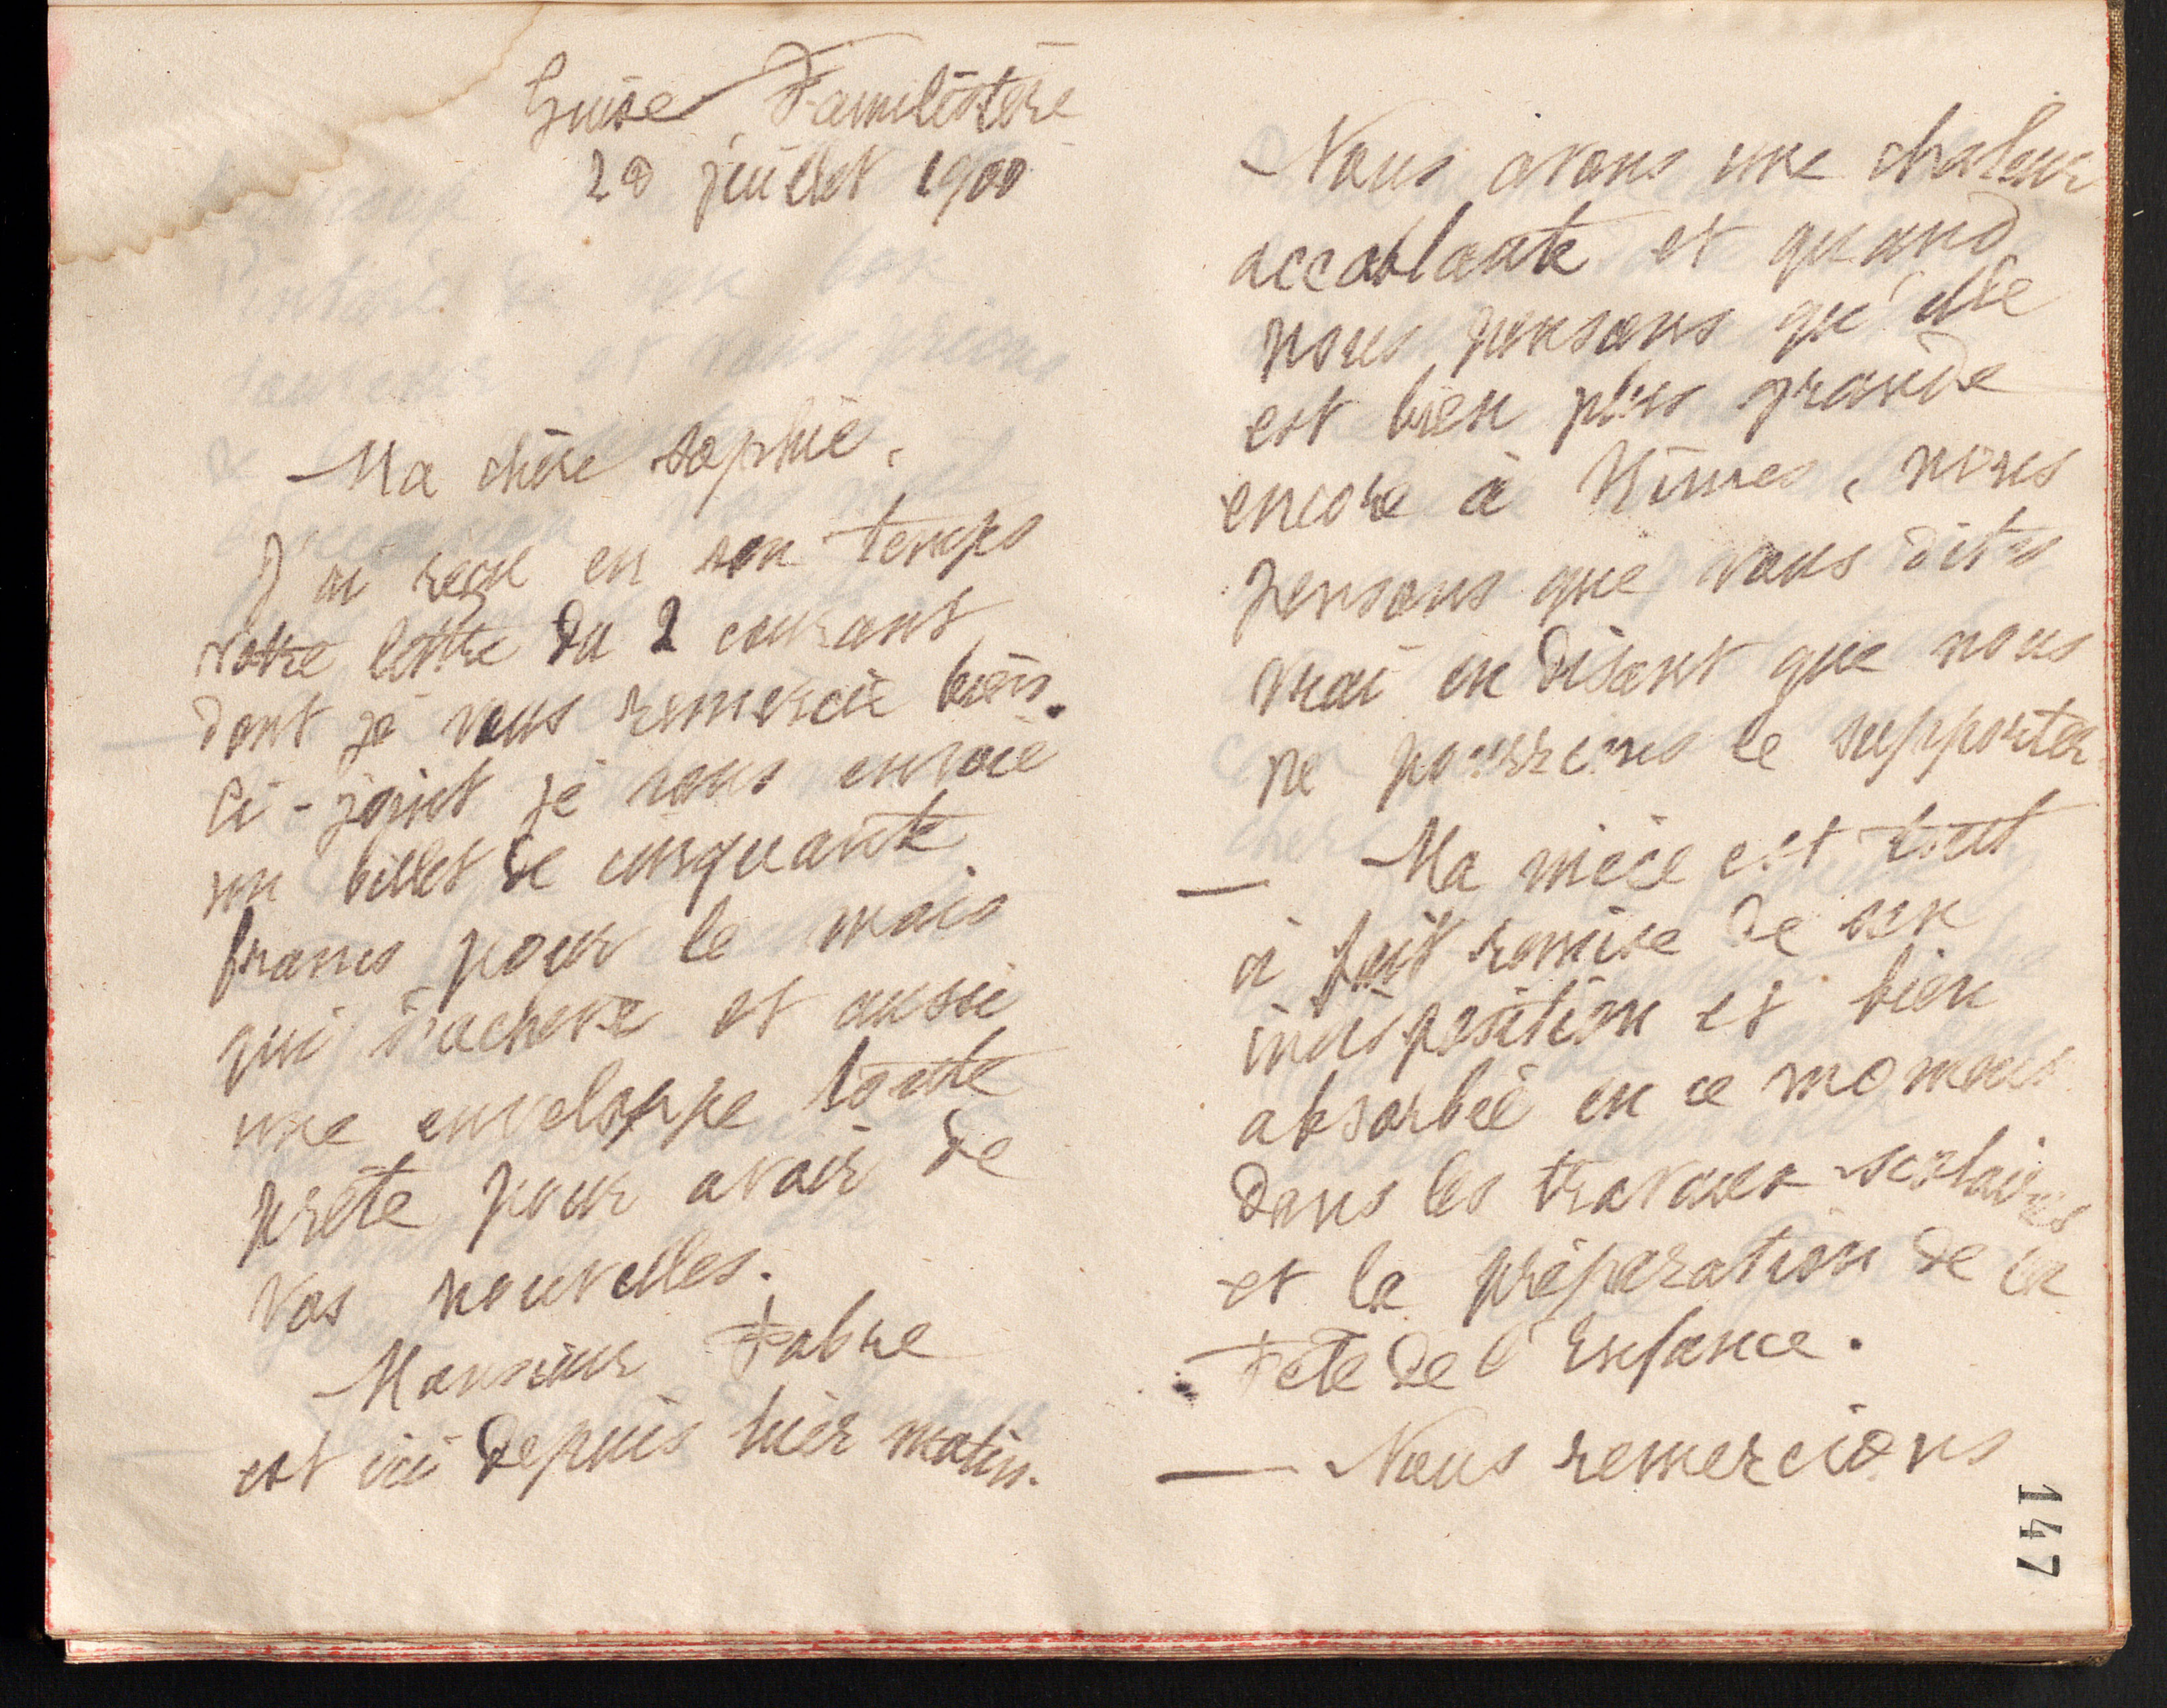 Guise Familistère
28 juillet 1900
Ma chère Sophie,
J'ai reçu en son temps
votre lettre du 2 courant
dont je vous remercie bien.
Ci-joint je vous envoie
un billet de cinquante
francs pour le mois
qui s'achève et aussi
une enveloppe toute
prête pour avoir de
vos nouvelles.
Monsieur Fabre
est ici depuis hier matin.
Nous avons une chaleur
accablante et quand
nous pensons qu'elle
est bien plus grande
encore à Nîmes, nous
pensons que vous dites
vrai en disant que nous
ne pourrions le supporter
— Ma nièce est tout
à fait remise de son
indisposition et bien
absorbée en ce moment
dans les travaux scolaires
et la préparation de la
Fête de l'Enfance.
— Nous remercions
147